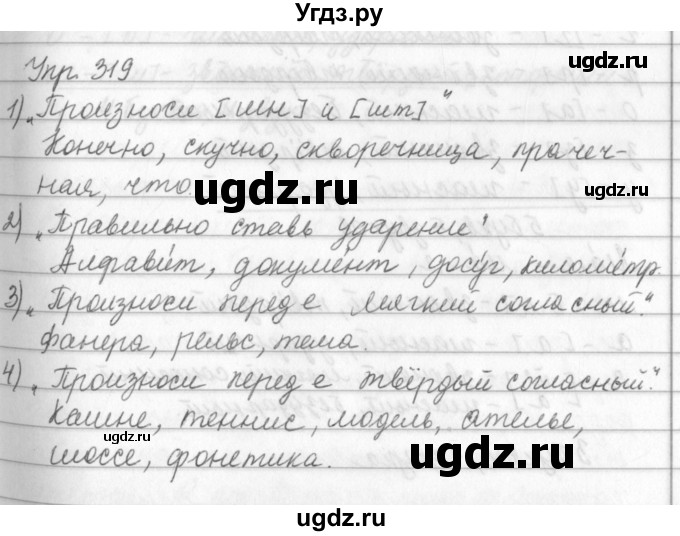 Угдз.ру
Упр. 319
1) „Произноси [шн] и [шт]“
Конечно, скучно, скворечница, прачеч-
ная, что.
2) „Правильно ставь ударение“
Алфави́т, докуме́нт, досу́г, киломе́тр.
3) „Произноси перед е мягкий согласный.“
Фанера, рельс, тема.
4) „Произноси перед е твёрдый согласный.“
Кашне, теннис, модель, ателье,
шоссе, фонетика.
ugdz.ru
ugdz.ru
ugdz.ru
ugdz.ru
ugdz.ru
ugdz.ru
ugdz.ru